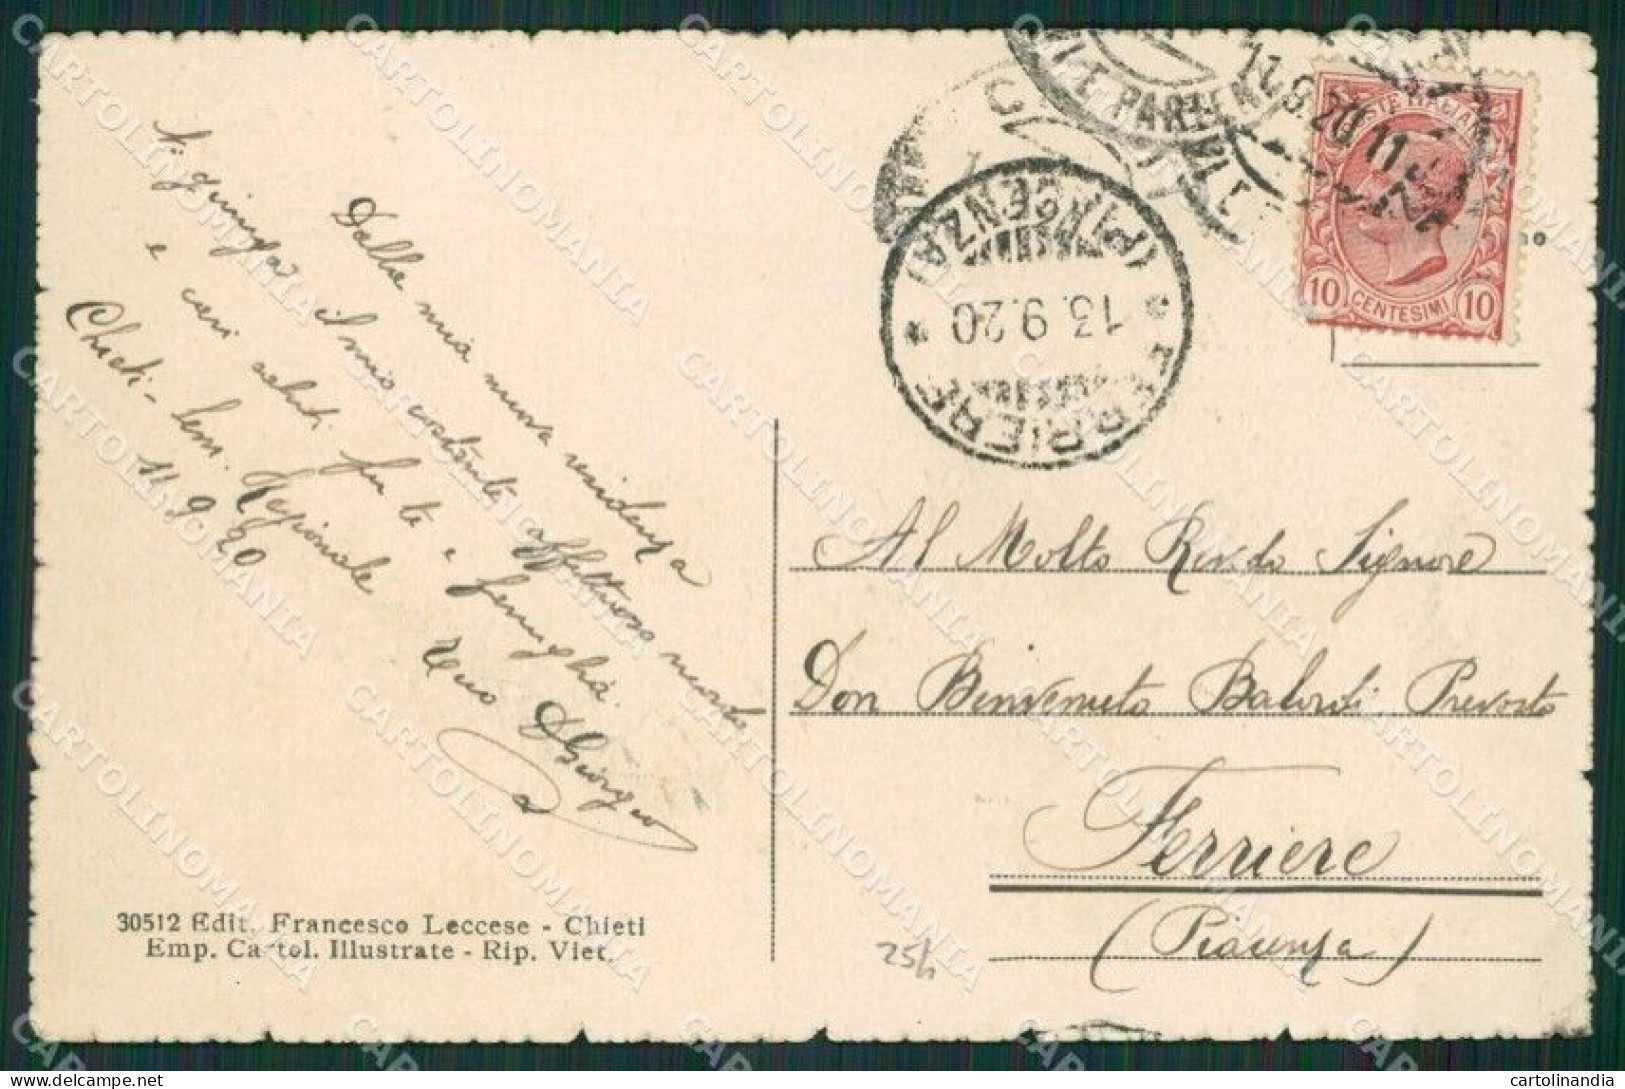 Dalla mia nuova residenza
ti giunga il mio costante affettuoso ricordo
e cari saluti per te e famiglia.
Chieti - Sem. Regionale
11 9 920
30512 Edit. Francesco Leccese - Chieti
Emp. Cartol. Illustrate - Rip. Viet.
POSTE ITALIANE
10 CENTESIMI 10
FERRIERE
(PIACENZA)
13.9.20
Al Molto Rev.do Signore
Don Benvenuto Balordi Prevosto
Ferriere
(Piacenza)
25/1
CARTOLINOMANIA
cartolinandia